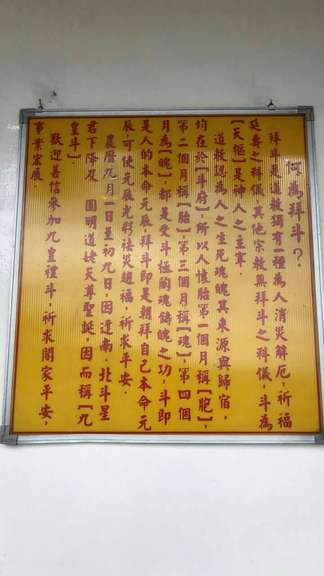 何為拜斗？
拜斗是道教獨有一種為人消災解厄，祈福
延壽之科儀，其他宗教無拜斗之科儀，斗為
【天樞】是神人之主宰。
道教認為人之生死魂魄其來源與歸宿，
均在於【斗府】所以人懷胎第一個月稱【胞】，
第二個月稱【胎】，第三個月稱【魂】，第四個
月為【魄】，都是受斗樞陶魂鑄魄之功，斗即
是人的本命元辰，拜斗即是朝拜自己本命元
辰，可使元辰光彩祛災趨福，祈求平安。
農曆九月一日至初九日，因逢南、北斗星
君下降及 圓明道姥天尊聖誕，因而稱【九
皇斗】。
歡迎善信來加九皇禮斗，祈求閤家平安，
事業宏展。